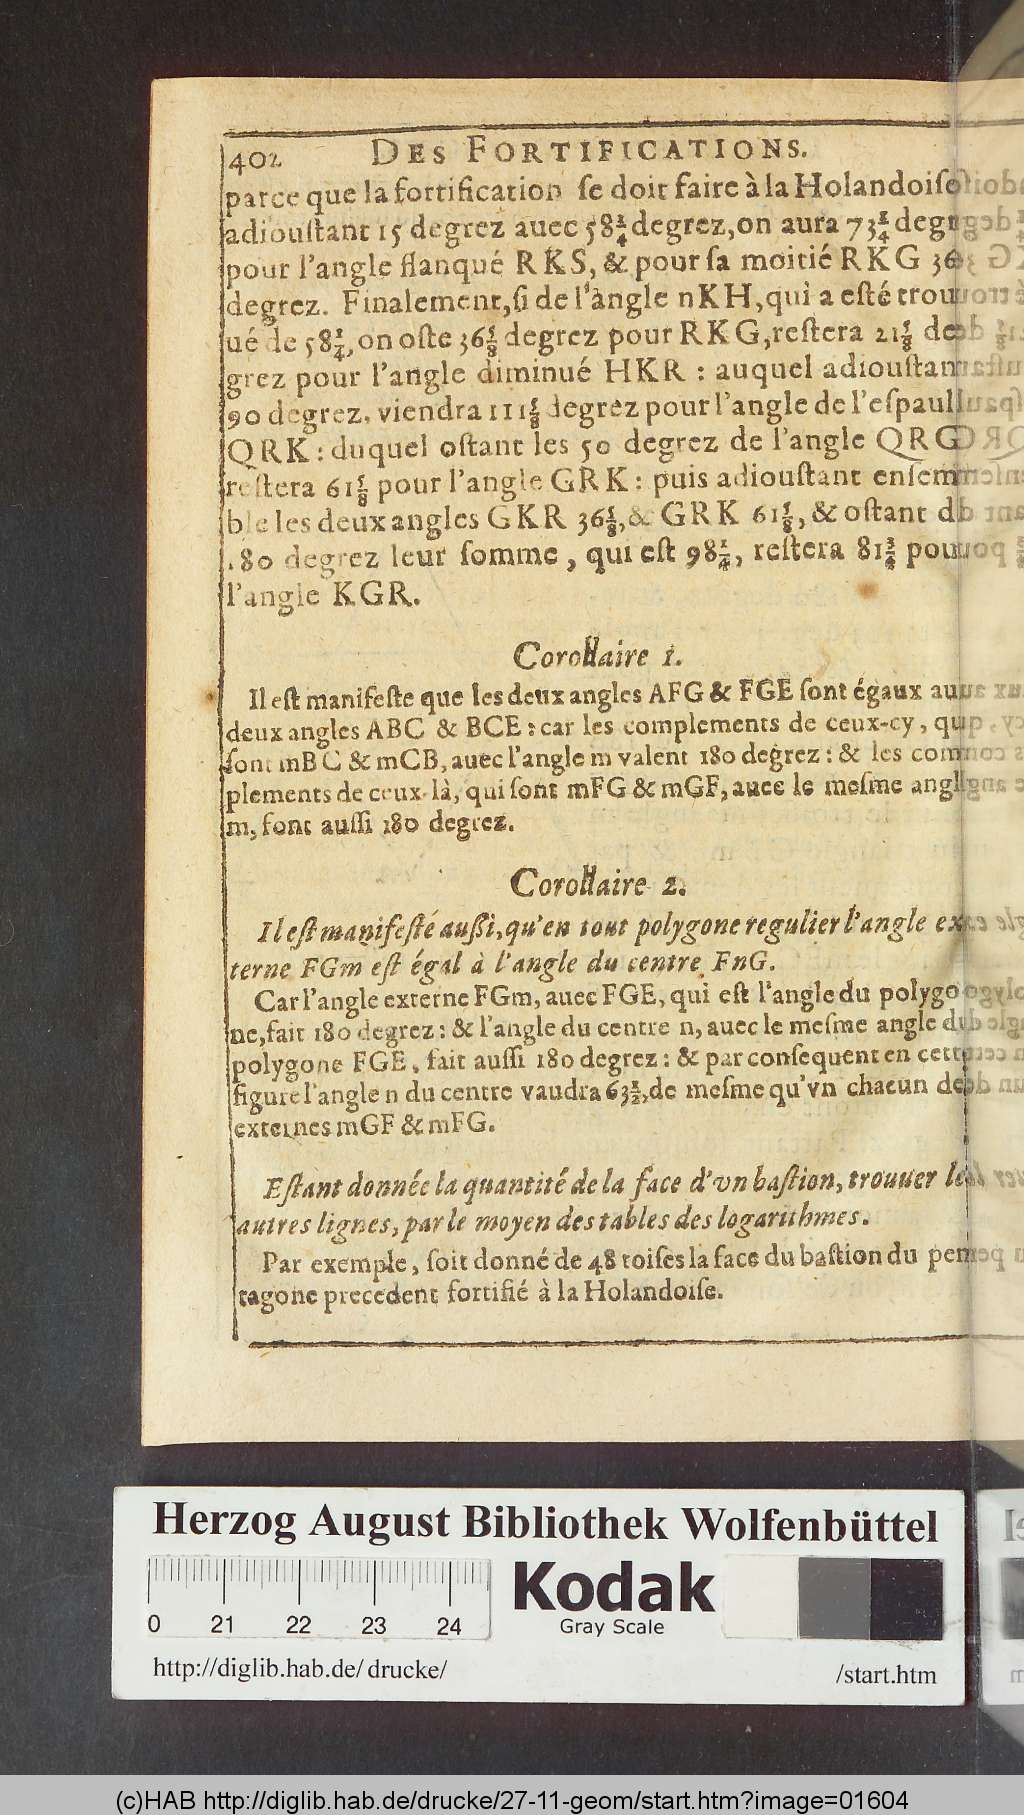 402 DES FORTIFICATIONS.
parce que la fortification se doit faire à la Holandoise
adioustant 15 degrez auec 58¼ degrez, on aura 73¼ degrez
pour l'angle flanqué RKS, & pour sa moitié RKG 36⅝
degrez. Finalement, si de l'angle nKH, qui a esté trou-
ué de 58¼, on oste 36⅝ degrez pour RKG, restera 21⅝ de-
grez pour l'angle diminué HKR : auquel adioustant
90 degrez, viendra 111⅝ degrez pour l'angle de l'espaulle
QRK : duquel ostant les 50 degrez de l'angle QRG
restera 61⅝ pour l'angle GRK : puis adioustant ensem-
ble les deux angles GKR 36⅝, & GRK 61⅝, & ostant de
180 degrez leur somme, qui est 98¼, restera 81¾ pour
l'angle KGR.
Corollaire 1.
Il est manifeste que les deux angles AFG & FGE sont égaux aux
deux angles ABC & BCE : car les complements de ceux-cy, qui
sont mBC & mCB, auec l'angle m valent 180 degrez : & les com-
plements de ceux-là, qui sont mFG & mGF, auec le mesme angle
m, font aussi 180 degrez.
Corollaire 2.
Il est manifesté aussi, qu'en tout polygone regulier l'angle ex-
terne FGm est égal à l'angle du centre FnG.
Car l'angle externe FGm, auec FGE, qui est l'angle du polygo-
ne, fait 180 degrez : & l'angle du centre n, auec le mesme angle du
polygone FGE, fait aussi 180 degrez : & par consequent en cette
figure l'angle n du centre vaudra 63½, de mesme qu'vn chacun des
externes mGF & mFG.
Estant donnée la quantité de la face d'vn bastion, trouuer les
autres lignes, par le moyen des tables des logarithmes.
Par exemple, soit donné de 48 toises la face du bastion du pen-
tagone precedent fortifié à la Holandoise.
Herzog August Bibliothek Wolfenbüttel
0 21 22 23 24
Kodak
Gray Scale
http://diglib.hab.de/drucke/ /start.htm
(c)HAB http://diglib.hab.de/drucke/27-11-geom/start.htm?image=01604